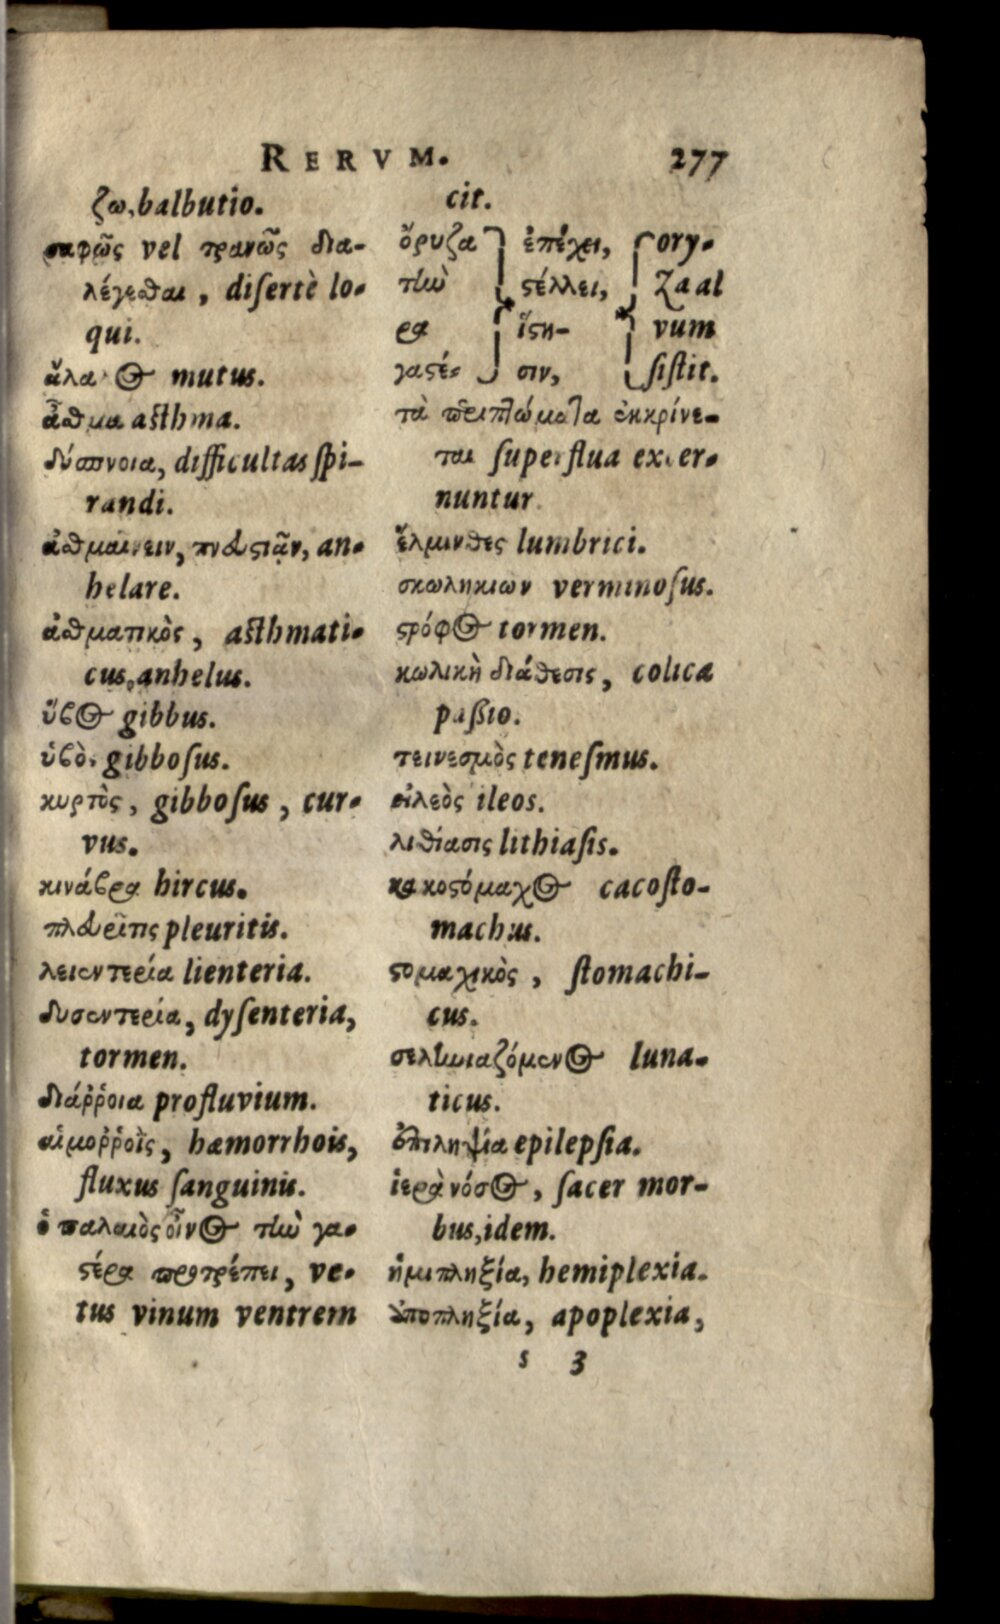 RERVM. 277
ζω, balbutio.
σαφῶς vel τρανῶς δια-
λέγεσθαι, disertè lo-
qui.
ἄλαλος mutus.
ἆσθμα asthma.
δύσπνοια, difficultas spi-
randi.
ἀσθμαίνειν, πνευστιᾷν, an-
helare.
ἀσθματικὸς, asthmati-
cus, anhelus.
ὕβος gibbus.
ὑβὸς gibbosus.
κυρτὸς, gibbosus, cur-
vus.
κινάβρα hircus.
πλευρῖτις pleuritis.
λειεντερία lienteria.
δυσεντερία, dysenteria,
tormen.
διάῤῥοια profluvium.
αἱμοῤῥοῒς, hæmorrhois,
fluxus sanguinis.
ὁ παλαιὸς οἶνος τὴν γα-
στέρα προτρέπει, ve-
tus vinum ventrem
cit.
ὄρυζα ἐπέχει, ory-
τὴν στέλλει, Za al
ρα ἵστη- vum
γαστέ- σιν, sistit.
τὰ περιττώματα ἐκκρίνε-
ται superflua excer-
nuntur.
ἕλμινθες lumbrici.
σκωληκιων verminosus.
στρόφος tormen.
κωλικὴ διάθεσις, colica
passio.
τεινεσμὸς tenesmus.
εἰλεὸς ileos.
λιθίασις lithiasis.
κακοστόμαχος cacosto-
machus.
στομαχικὸς, stomachi-
cus.
σεληνιαζόμενος luna-
ticus.
ἐπιληψία epilepsia.
ἱερὰ νόσος, sacer mor-
bus, idem.
ἡμιπληξία, hemiplexia.
ἀποπληξία, apoplexia,
s 3